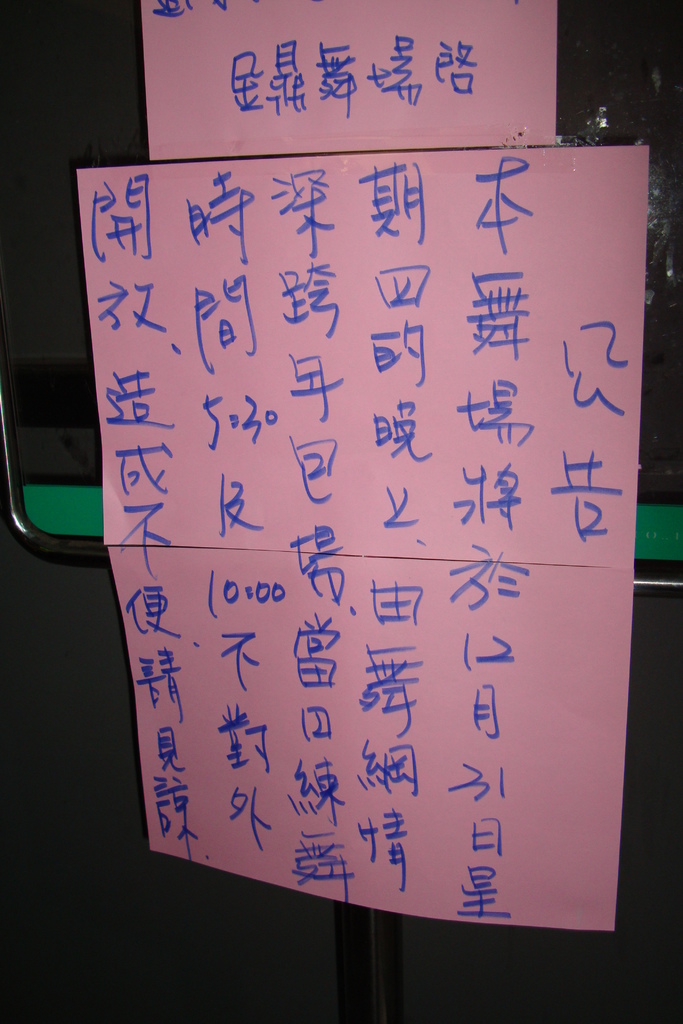 鼎舞場啓
公告
本舞場將於12月31日星
期四的晚上、由舞網情
深跨年包場、當日練舞
時間5:30及10:00不對外
開放、造成不便、請見諒.